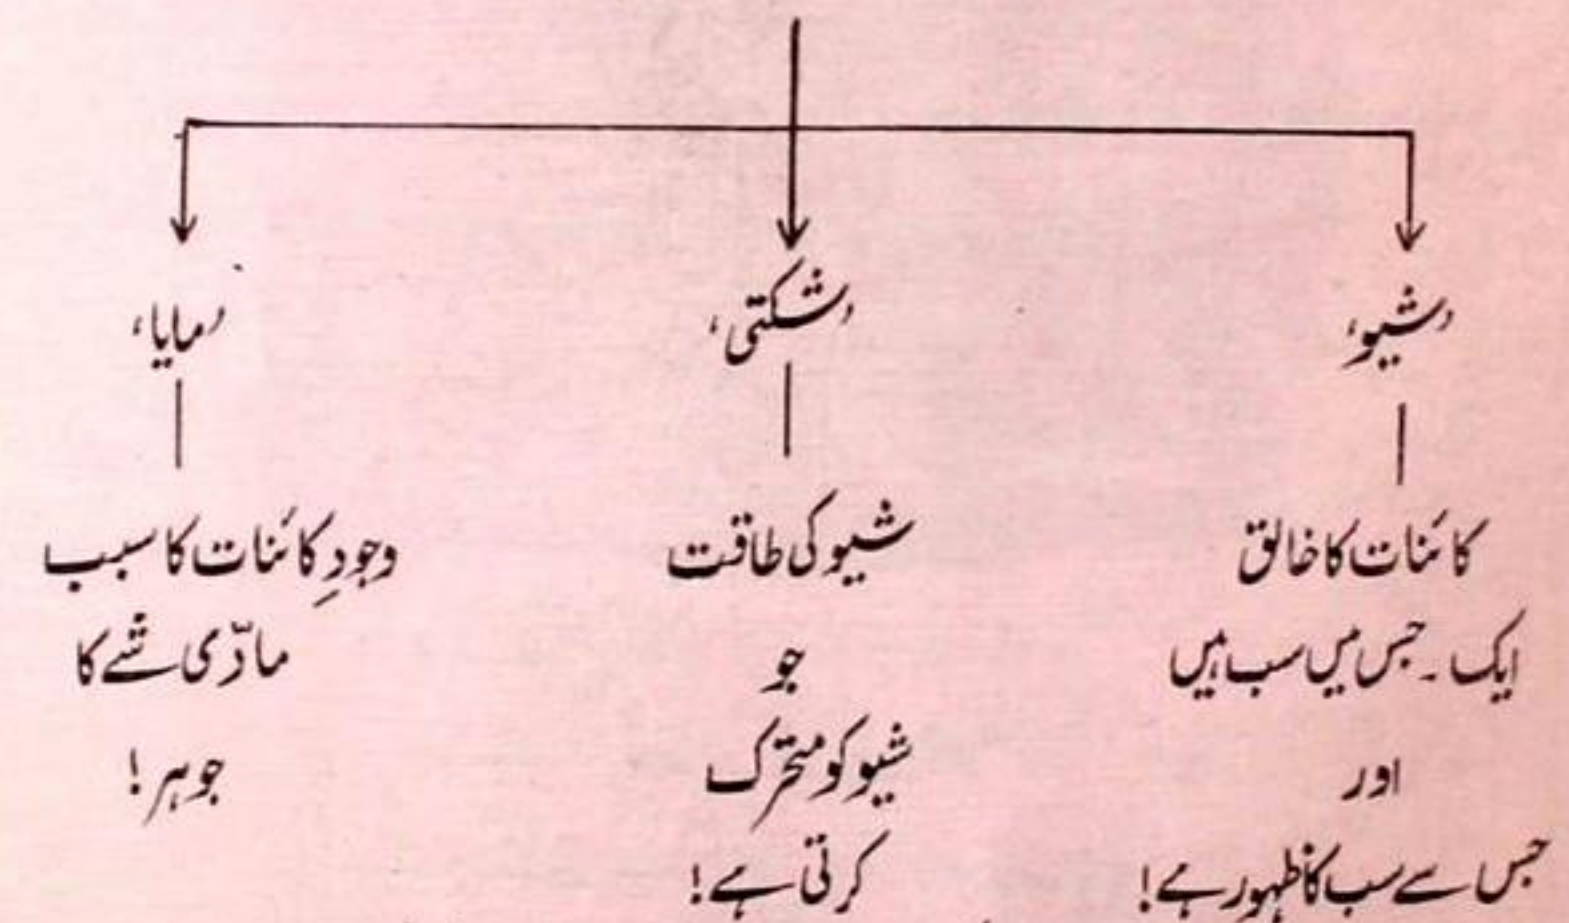 ’شیو‘
کائنات کا خالق
ایک ۔ جس میں سب ہیں
اور
جس سے سب کا ظہور ہے!
’شکتی‘
شیو کی طاقت
جو
شیو کو متحرّک
کرتی ہے!
’مایا‘
وجودِ کائنات کا سبب
مادّی شے کا
جوہر!